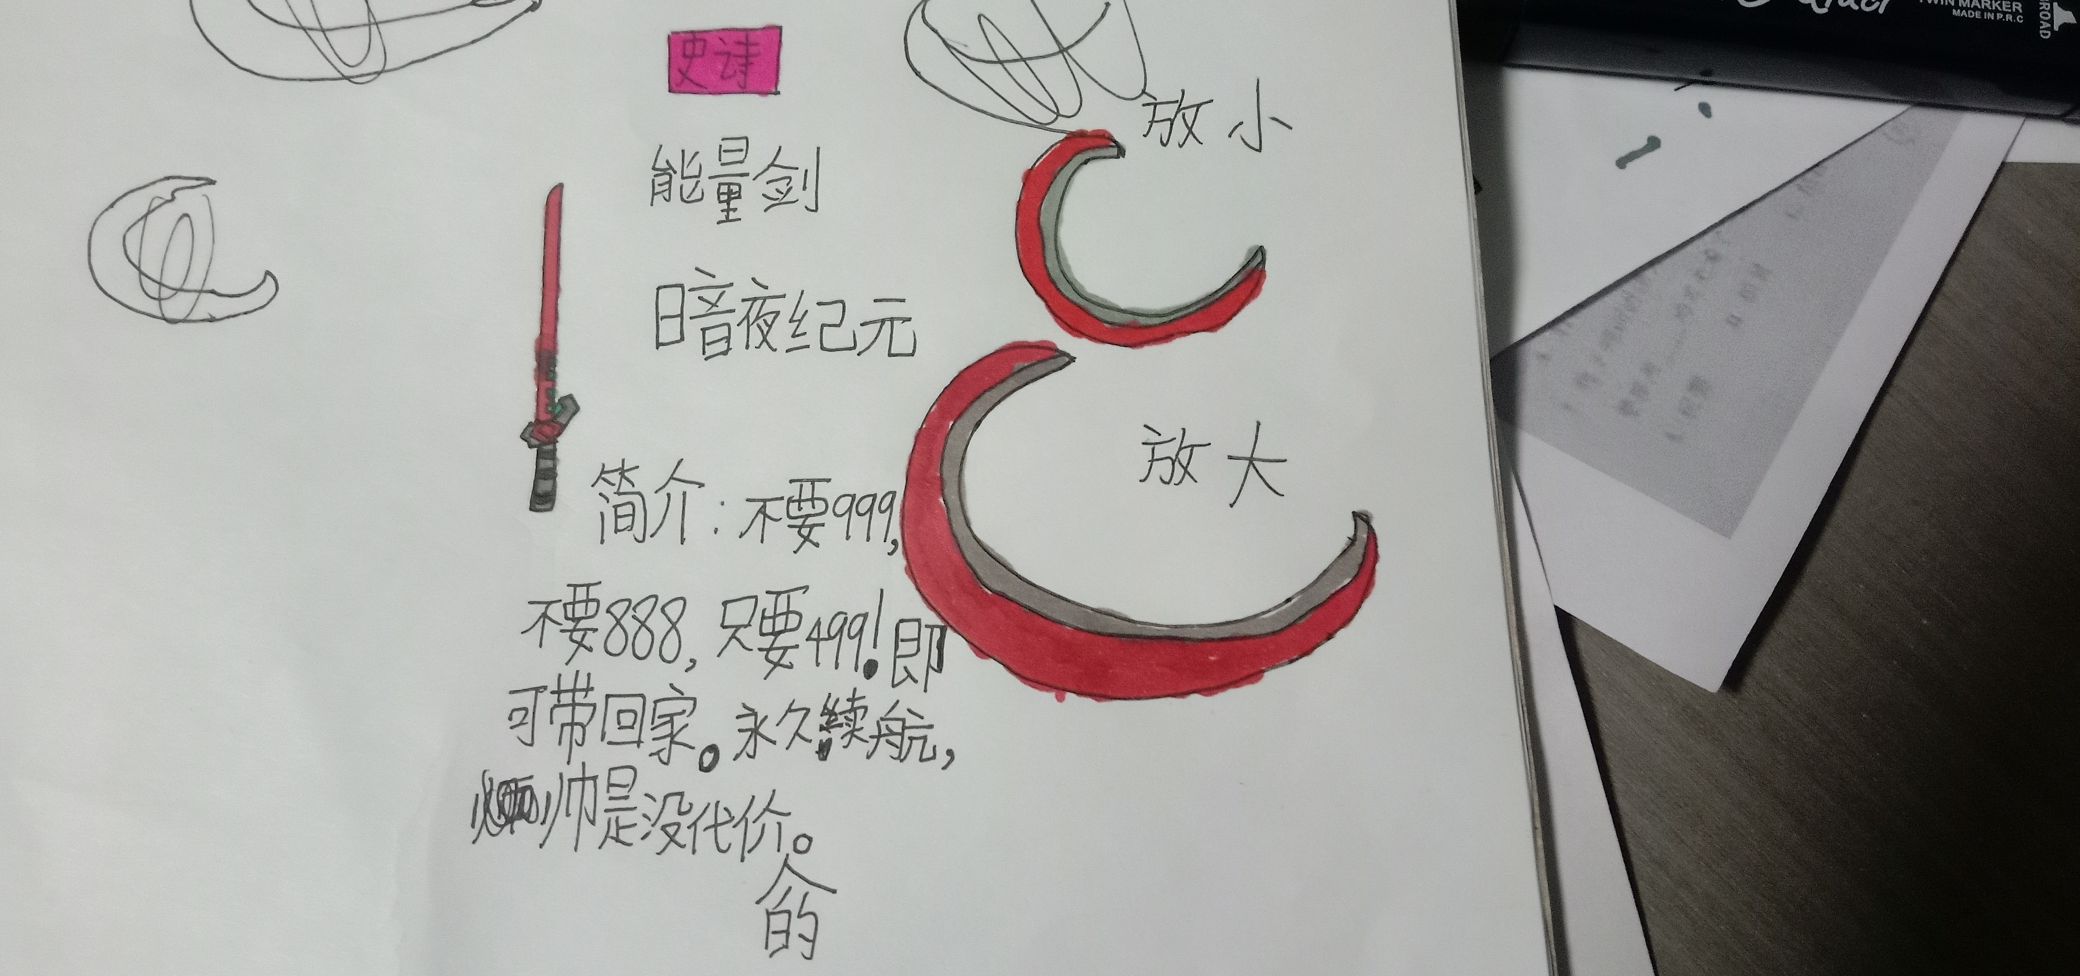 史诗
能量剑
暗夜纪元
放小
放大
简介：不要999,
不要888,只要499!即
可带回家。永久续航,
帅是没代价。
的
TWIN MARKER
MADE IN P.R.C
ROAD